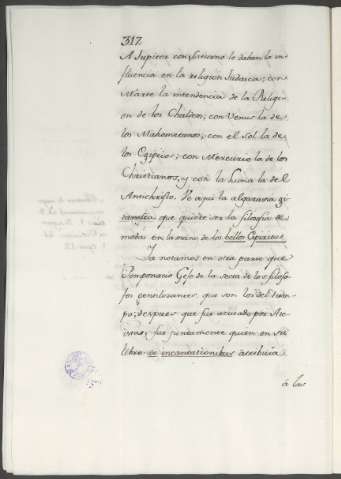 317.
A Jupiter con Saturno le daban la in-
fluencia en la religion Judaica; con
Marte la intendencia de la Religi-
on de los Chaldeos; con Venus la de
los Mahometanos; con el Sol la de
los Egipcios; con Mercurio la de los
Christianos, y con la Luna la del
Antichristo. He aqui la algarava gi-
tanesca que quiere ser la filosofia de
moda en la marina de los bellos Espiritus.
Ya notamos en otra parte que
Pomponacio Gefe de la secta de los filoso-
fos pensilesantes, que son los del tiem-
po; despues que fue acusado por Ate-
ismo, fue juntamente quien en su
libro de incantationibus atribuia
a las